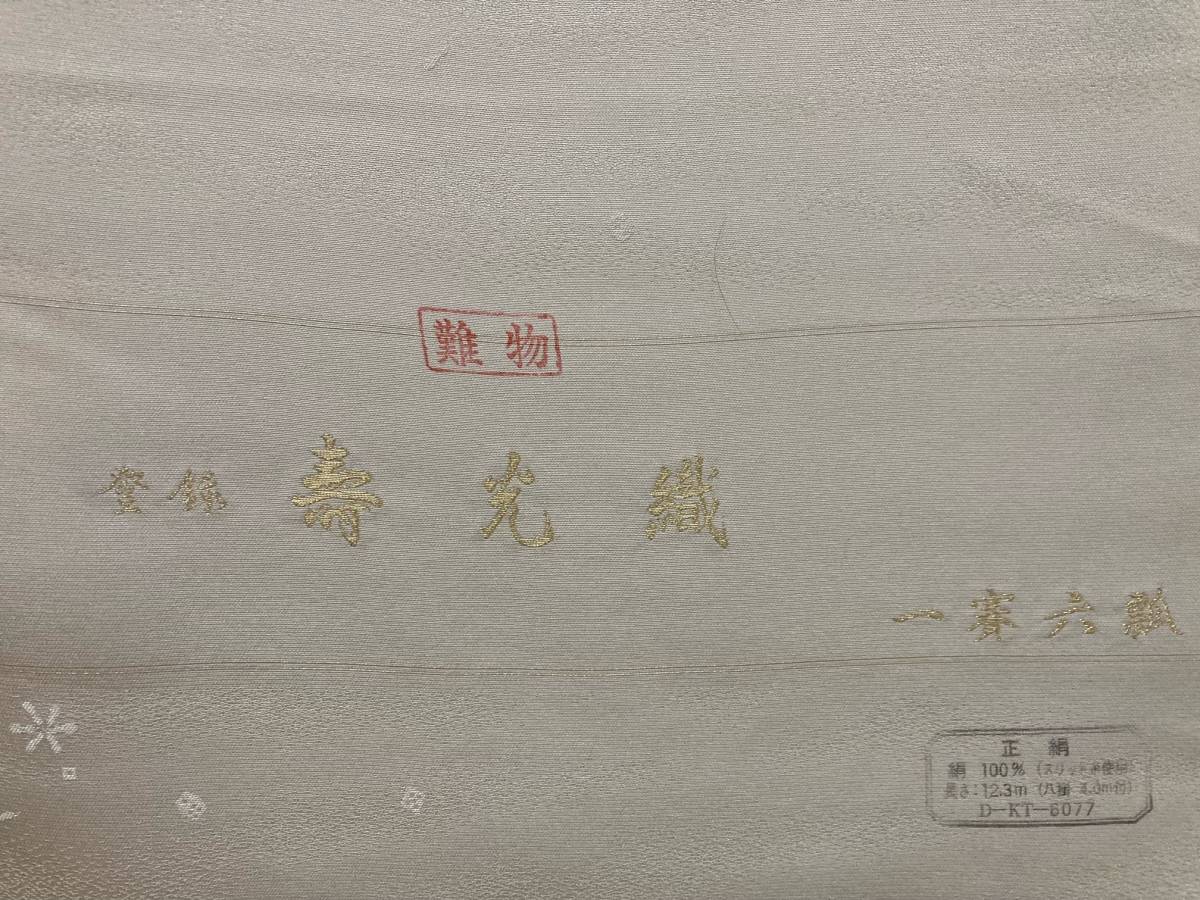 難物
登録 壽光織
一賽六瓢
正絹
絹 100% (スリット糸使用)
長さ:12.3m (八掛 4.0m付)
D-KT-6077